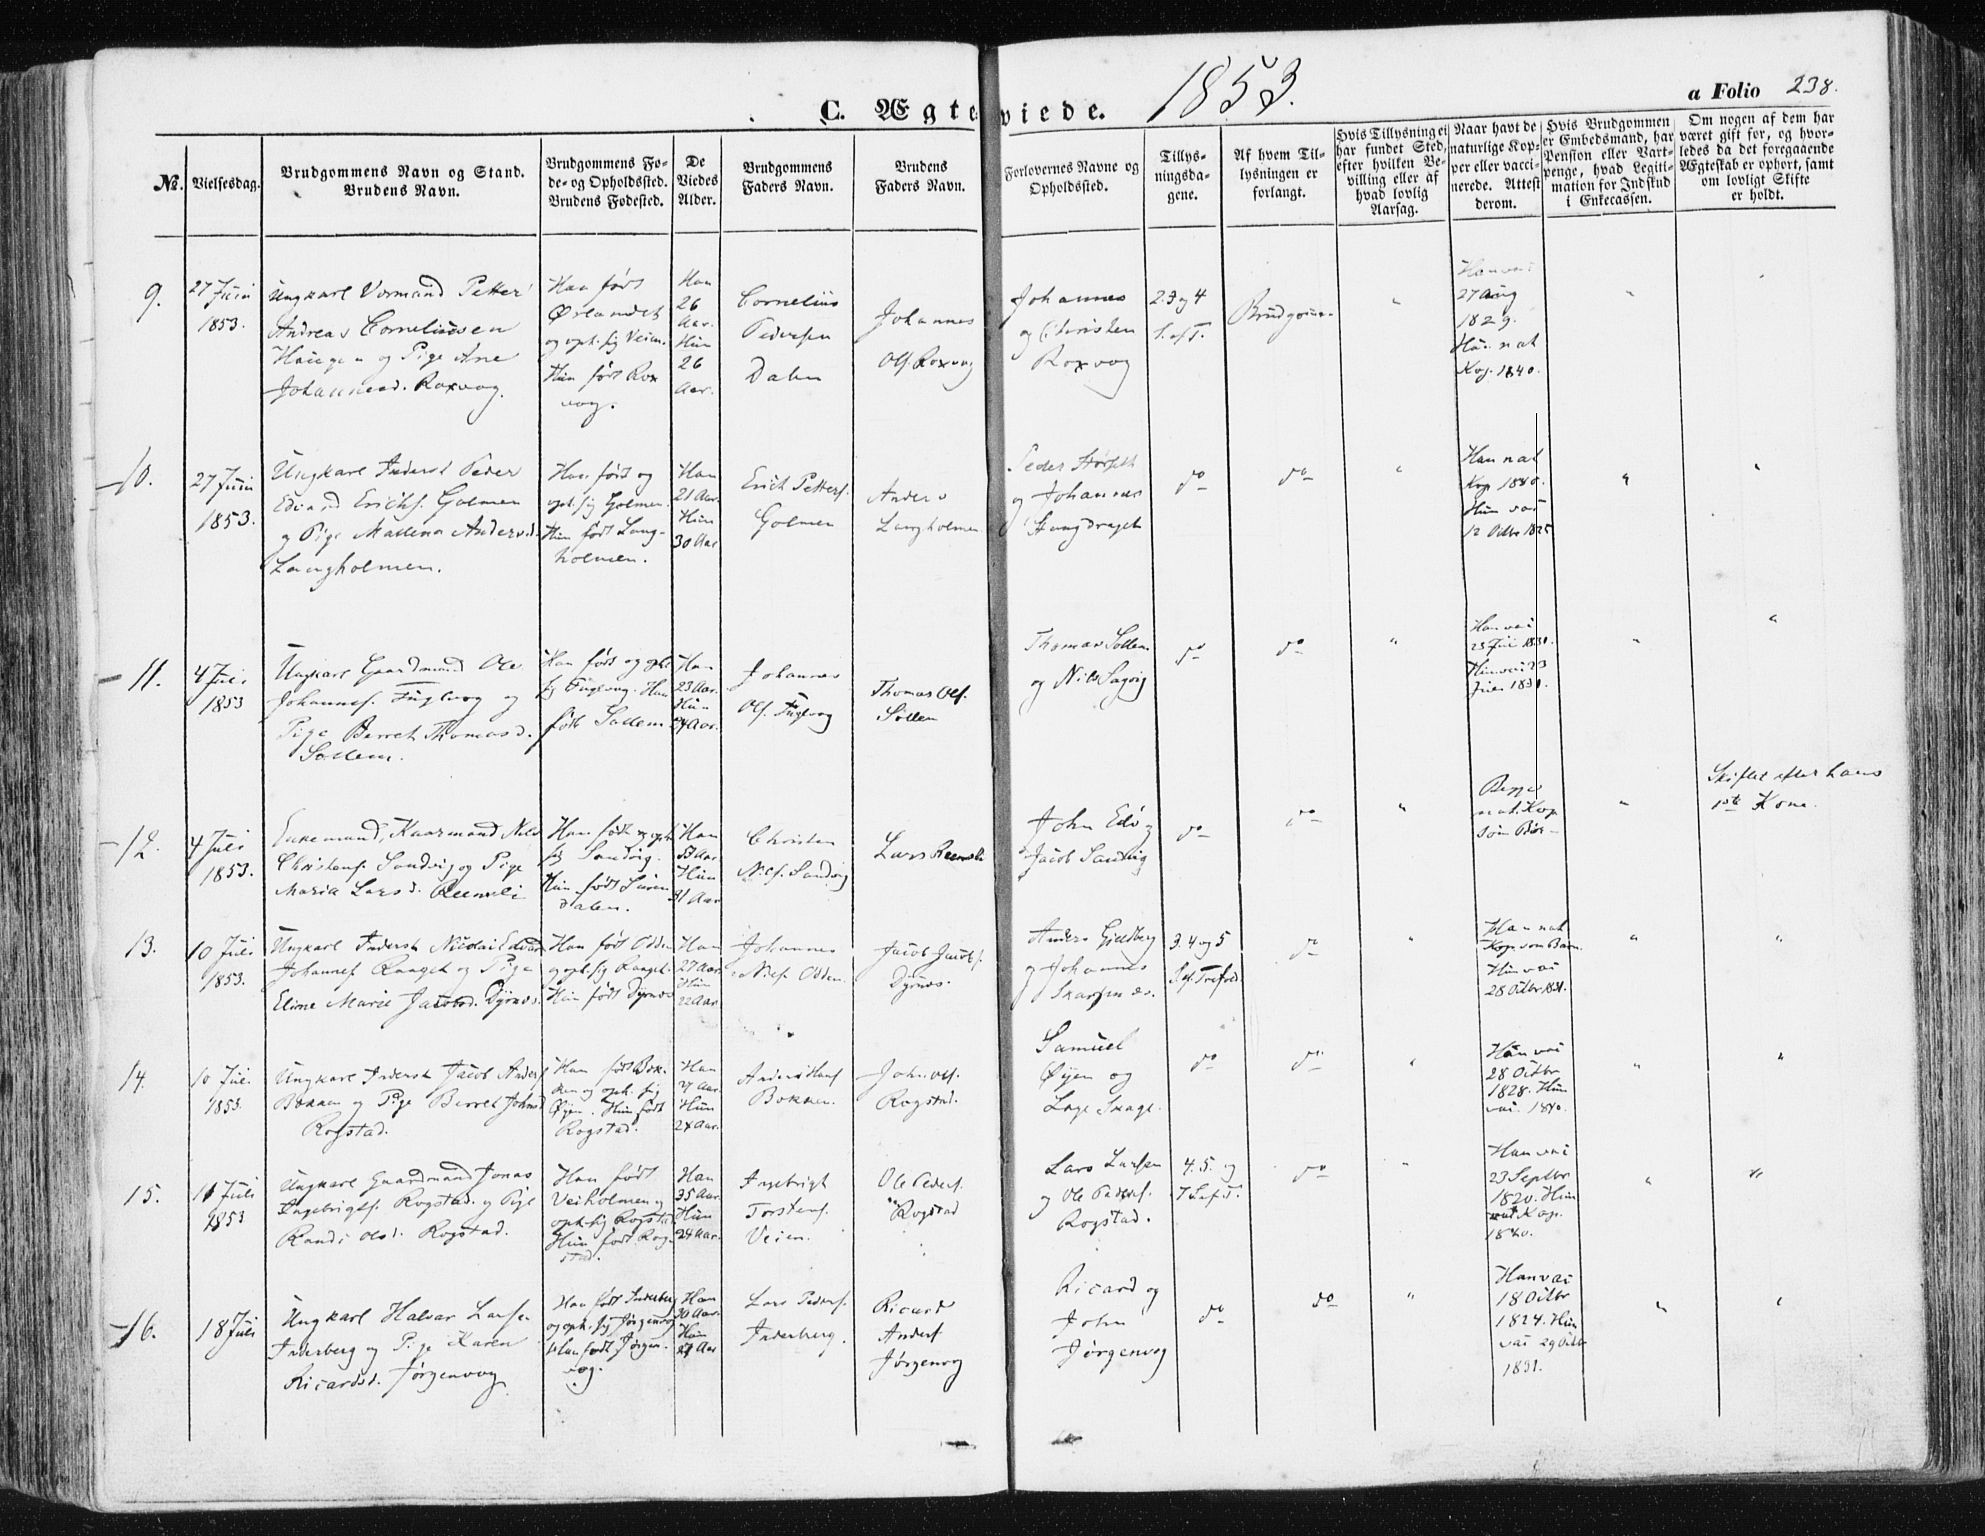 C. Ægteviede. 1853.
a Folio 238.
No.
Vielsesdag.
Brudgommens Navn og Stand.
Brudens Navn.
Brudgommens Fø-
de- og Opholdssted.
Brudens Fødested.
De
Viedes
Alder.
Brudgommens
Faders Navn.
Brudens
Faders Navn.
Forlovernes Navne og
Opholdssted.
Tillys-
ningsda-
gene.
Af hvem Til-
lysningen er
forlangt.
Hvis Tillysning ei
har fundet Sted,
efter hvilken Be-
villing eller af
hvad lovlig
Aarsag.
Naar havt de
naturlige Kop-
per eller vacci-
nerede. Attest
derom.
Hvis Brudgommen
er Embedsmand, har
Pension eller Vart-
penge, hvad Legiti-
mation for Indskud
i Enkecassen.
Om nogen af dem har
været gift før, og hvor-
ledes da det foregaaende
Ægteskab er ophørt, samt
om lovligt Skifte
er holdt.
9.
27 Juni
1853.
Ungkarl Vormand Petter
Andreas Corneliussen
Haugen og Pige Ane
Johannesd. Roxvog.
Han født
Ørlandet
og oph. sig Veien.
Hun født Rox
vog.
Han
26
Aar.
Hun
26
Aar.
Cornelius
Pedersen
Dalen
Johannes
Ols. Roxvog
Johannes
og Christen
Roxvog
2. 3 og 4
S. af T.
Brudgommen
Han vac
27 Aug
1829.
Hun nat
Kop. 1840.
10.
27 Juni
1853.
Ungkarl Inderst Peder
Edvard Erichs. Golmen
og Pige Mallena Andersd.
Langholmen.
Han født og
oph. sig Golmen.
Hun født Lang-
holmen.
Han
21 Aar.
Hun
30 Aar
Erich Petters.
Golmen
Anders
Langholmen
Peder
og Johannes
Stangdraget
do
do
Han nat
Kop. 1840.
Hun vac
12 Octbr 1825
11.
4 Juli
1853
Ungkarl Gaardmand Ole
Johannes. Fuglvog og
Pige Berret Thomasd.
Sollem.
Han født og oph.
sig Fuglvog. Hun
født Sollem
Han
23 Aar.
Hun
24 Aar.
Johannes
Ols. Fuglvog
Thomas Ols.
Sollem
Thomas Sollem
og Nils Sagvig
do
do
Han vac
25 Juli 1830.
Hun vac 23
Juli 1830.
12.
4 Juli
1853.
Enkemand, Huusmand Nils
Christens. Sandvig og Pige
Maria Larsd. Reensli
Han født og oph.
sig Sandvig.
Hun født Suren
dalen.
Han
53 Aar
Hun
31 Aar
Christen
Niels. Sandvig
Lars Reenslie
John Edø og
Jacob Sandvig
do
do
Begge
nat. Kop
som Børn
Skiftet efter hans
1ste Kone.
13.
10 Juli
1853.
Ungkarl Inderst Nicolai Edvard
Johannes. Raaget og Pige
Eline Marie Jacobsd. Dyrnæs.
Han født Odden
og oph. sig Raaget.
Hun født Dyrnæs
Han
27 Aar
Hun
22 Aar.
Johannes
Niels. Odden.
Jacob Jacobs.
Dyrnæs.
Anders Gjeldberg
og Johannes
Skarpnæs.
3. 4 og 5
S. af Trefold.
do
Han nat
Kop. som Barn.
Hun vac
28 Octbr. 1831.
14.
10 Juli
1853.
Ungkarl Inderst Jacob Anders.
Bokken og Pige Berret Johnsd.
Rogstad.
Han født Bok-
ken og oph. sig
Øyen. Hun født
Rogstad.
Han
27 Aar.
Hun
24 Aar.
Anders Hans.
Bokken.
John Ols.
Rogstad.
Samuel
Øyen og
Lage Skage.
do
do
Han vac
28 Octbr
1828. Hun
vac. 1840.
15.
11 Juli
1853
Ungkarl Gaardmand Jonas
Ingebrigts. Rogstad. og Pige
Randi Olsd. Rogstad.
Han født
Veiholmen og
oph. sig Rogstad
Hun født Rog-
stad.
Han
35 Aar.
Hun
24 Aar.
Ingebrigt
Torstens.
Veien.
Ole Peders.
Rogstad
Lars Larsen
og Ole Peders.
Rogstad.
4. 5. og
7 S. af T.
do
Han vac
23 Septbr
1820. Hun
nat Kop.
1840.
16.
18 Juli
Ungkarl Halvar Larsen
Inderberg og Pige Karen
Ricardsd. Jørgenvog
Han født Inderberg
og oph. sig Jørgenvog
Hun født Jørgen-
vog.
Han
30 Aar.
Hun
27 Aar
Lars Peders.
Inderberg.
Ricard
Anders.
Jørgenvog
Ricard og
John
Jørgenvog
do
do
Han vac
18 Octbr
1824. Hun
vac 29 Octbr
1831.